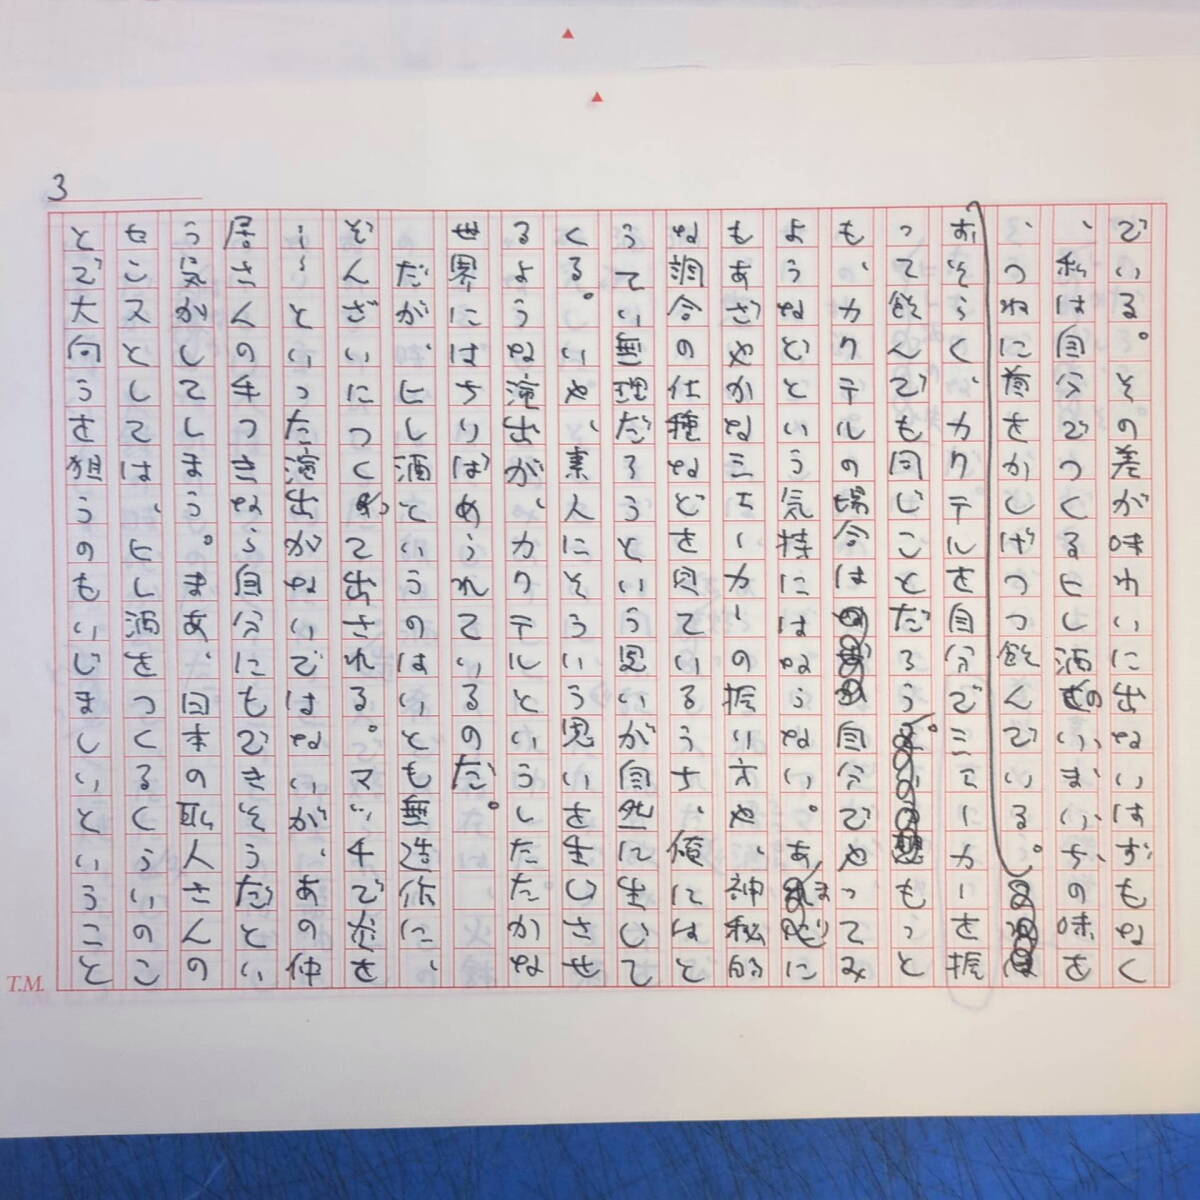 3
でいる。その差が味わいに出ないはずもなく
、私は自分でつくるヒレ酒のいまいちの味を
、つねに首をかしげつつ飲んでいる。
おそらく、カクテルを自分でシェーカーを振
って飲んでも同じことだろう。もっと
も、カクテルの場合は自分でやってみ
ようなどという気持にはならない。あまりに
もあざやかなシェーカーの振い方や、神秘的
な調合の仕種などを見ているうち、俺にはと
うてい無理だろうという思いが自然に生じて
くる。いや、素人にそういう思いを生じさせ
るような演出が、カクテルというしたたかな
世界にはちりばめられているのだ。
だが、ヒレ酒というのはいとも無造作に、
ぞんざいにつくって出される。マッチで炎を
……といった演出がないではないが、あの仲
居さんの手つきなら自分にもできそうだとい
う気がしてしまう。まあ、日本の職人さんの
センスとしては、ヒレ酒をつくるくらいのこ
とで大向うを狙うのもいじましいということ
T.M.